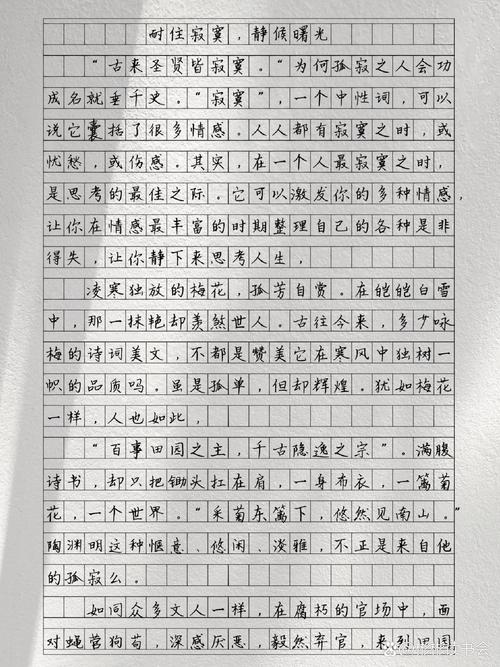 耐住寂寞，静候曙光
“古来圣贤皆寂寞。“为何孤寂之人会功
成名就垂千史。“寂寞”，一个中性词，可以
说它囊括了很多情感。人人都有寂寞之时，或
忧愁，或伤感。其实，在一个人最寂寞之时，
是思考的最佳之际。它可以激发你的多种情感，
让你在情感最丰富的时期整理自己的各种是非
得失，让你静下来思考人生，
凌寒独放的梅花，孤芳自赏。在皑皑白雪
中，那一抹艳却羡煞世人。古往今来，多少咏
梅的诗词美文，不都是赞美它在寒风中独树一
帜的品质吗。虽是孤单，但却辉煌。犹如梅花
一样，人也如此，
“百事田园之主，千古隐逸之宗”。满腹
诗书，却只把锄头扛在肩，一身布衣，一篱菊
花，一个世界。“采菊东篱下，悠然见南山。”
陶渊明这种惬意、悠闲、淡雅，不正是来自他
的孤寂么。
如同众多文人一样，在腐朽的官场中，面
对蝇营狗苟，深感厌恶，毅然弃官，来到田园